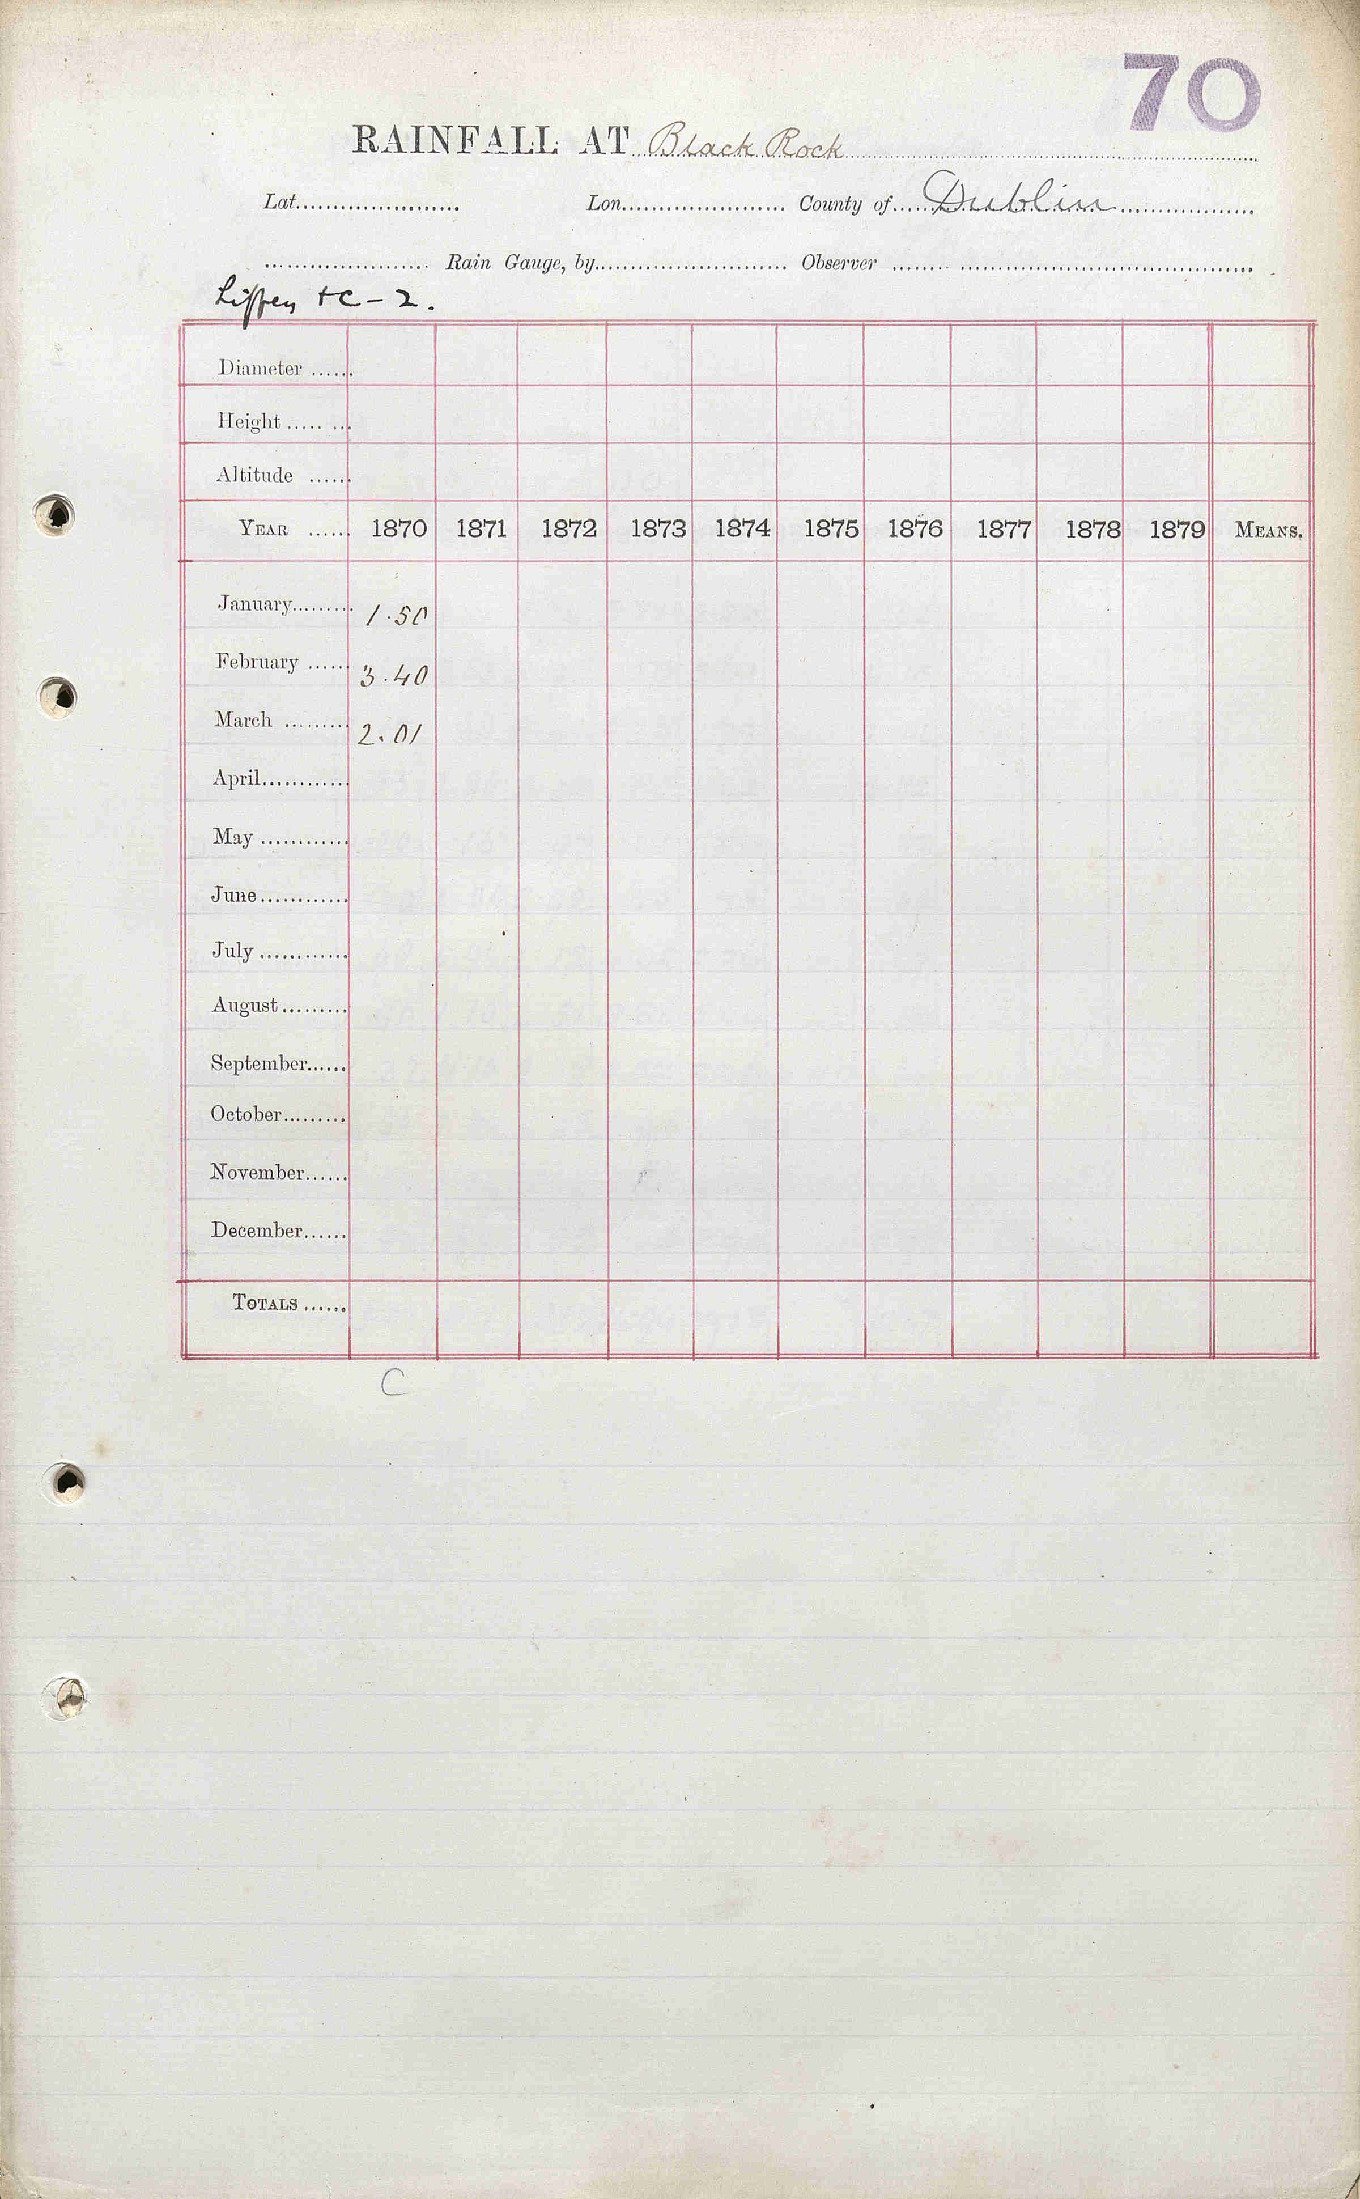 70
RAINFALL AT Black Rock
Lat. Lon. County of Dublin
Rain Gauge, by Observer
Liffey + C - 2.
Diameter
Height
Altitude
YEAR 1870 1871 1872 1873 1874 1875 1876 1877 1878 1879 MEANS.
January 1.50
February 3.40
March 2.01
April
May
June
July
August
September
October
November
December
TOTALS
C